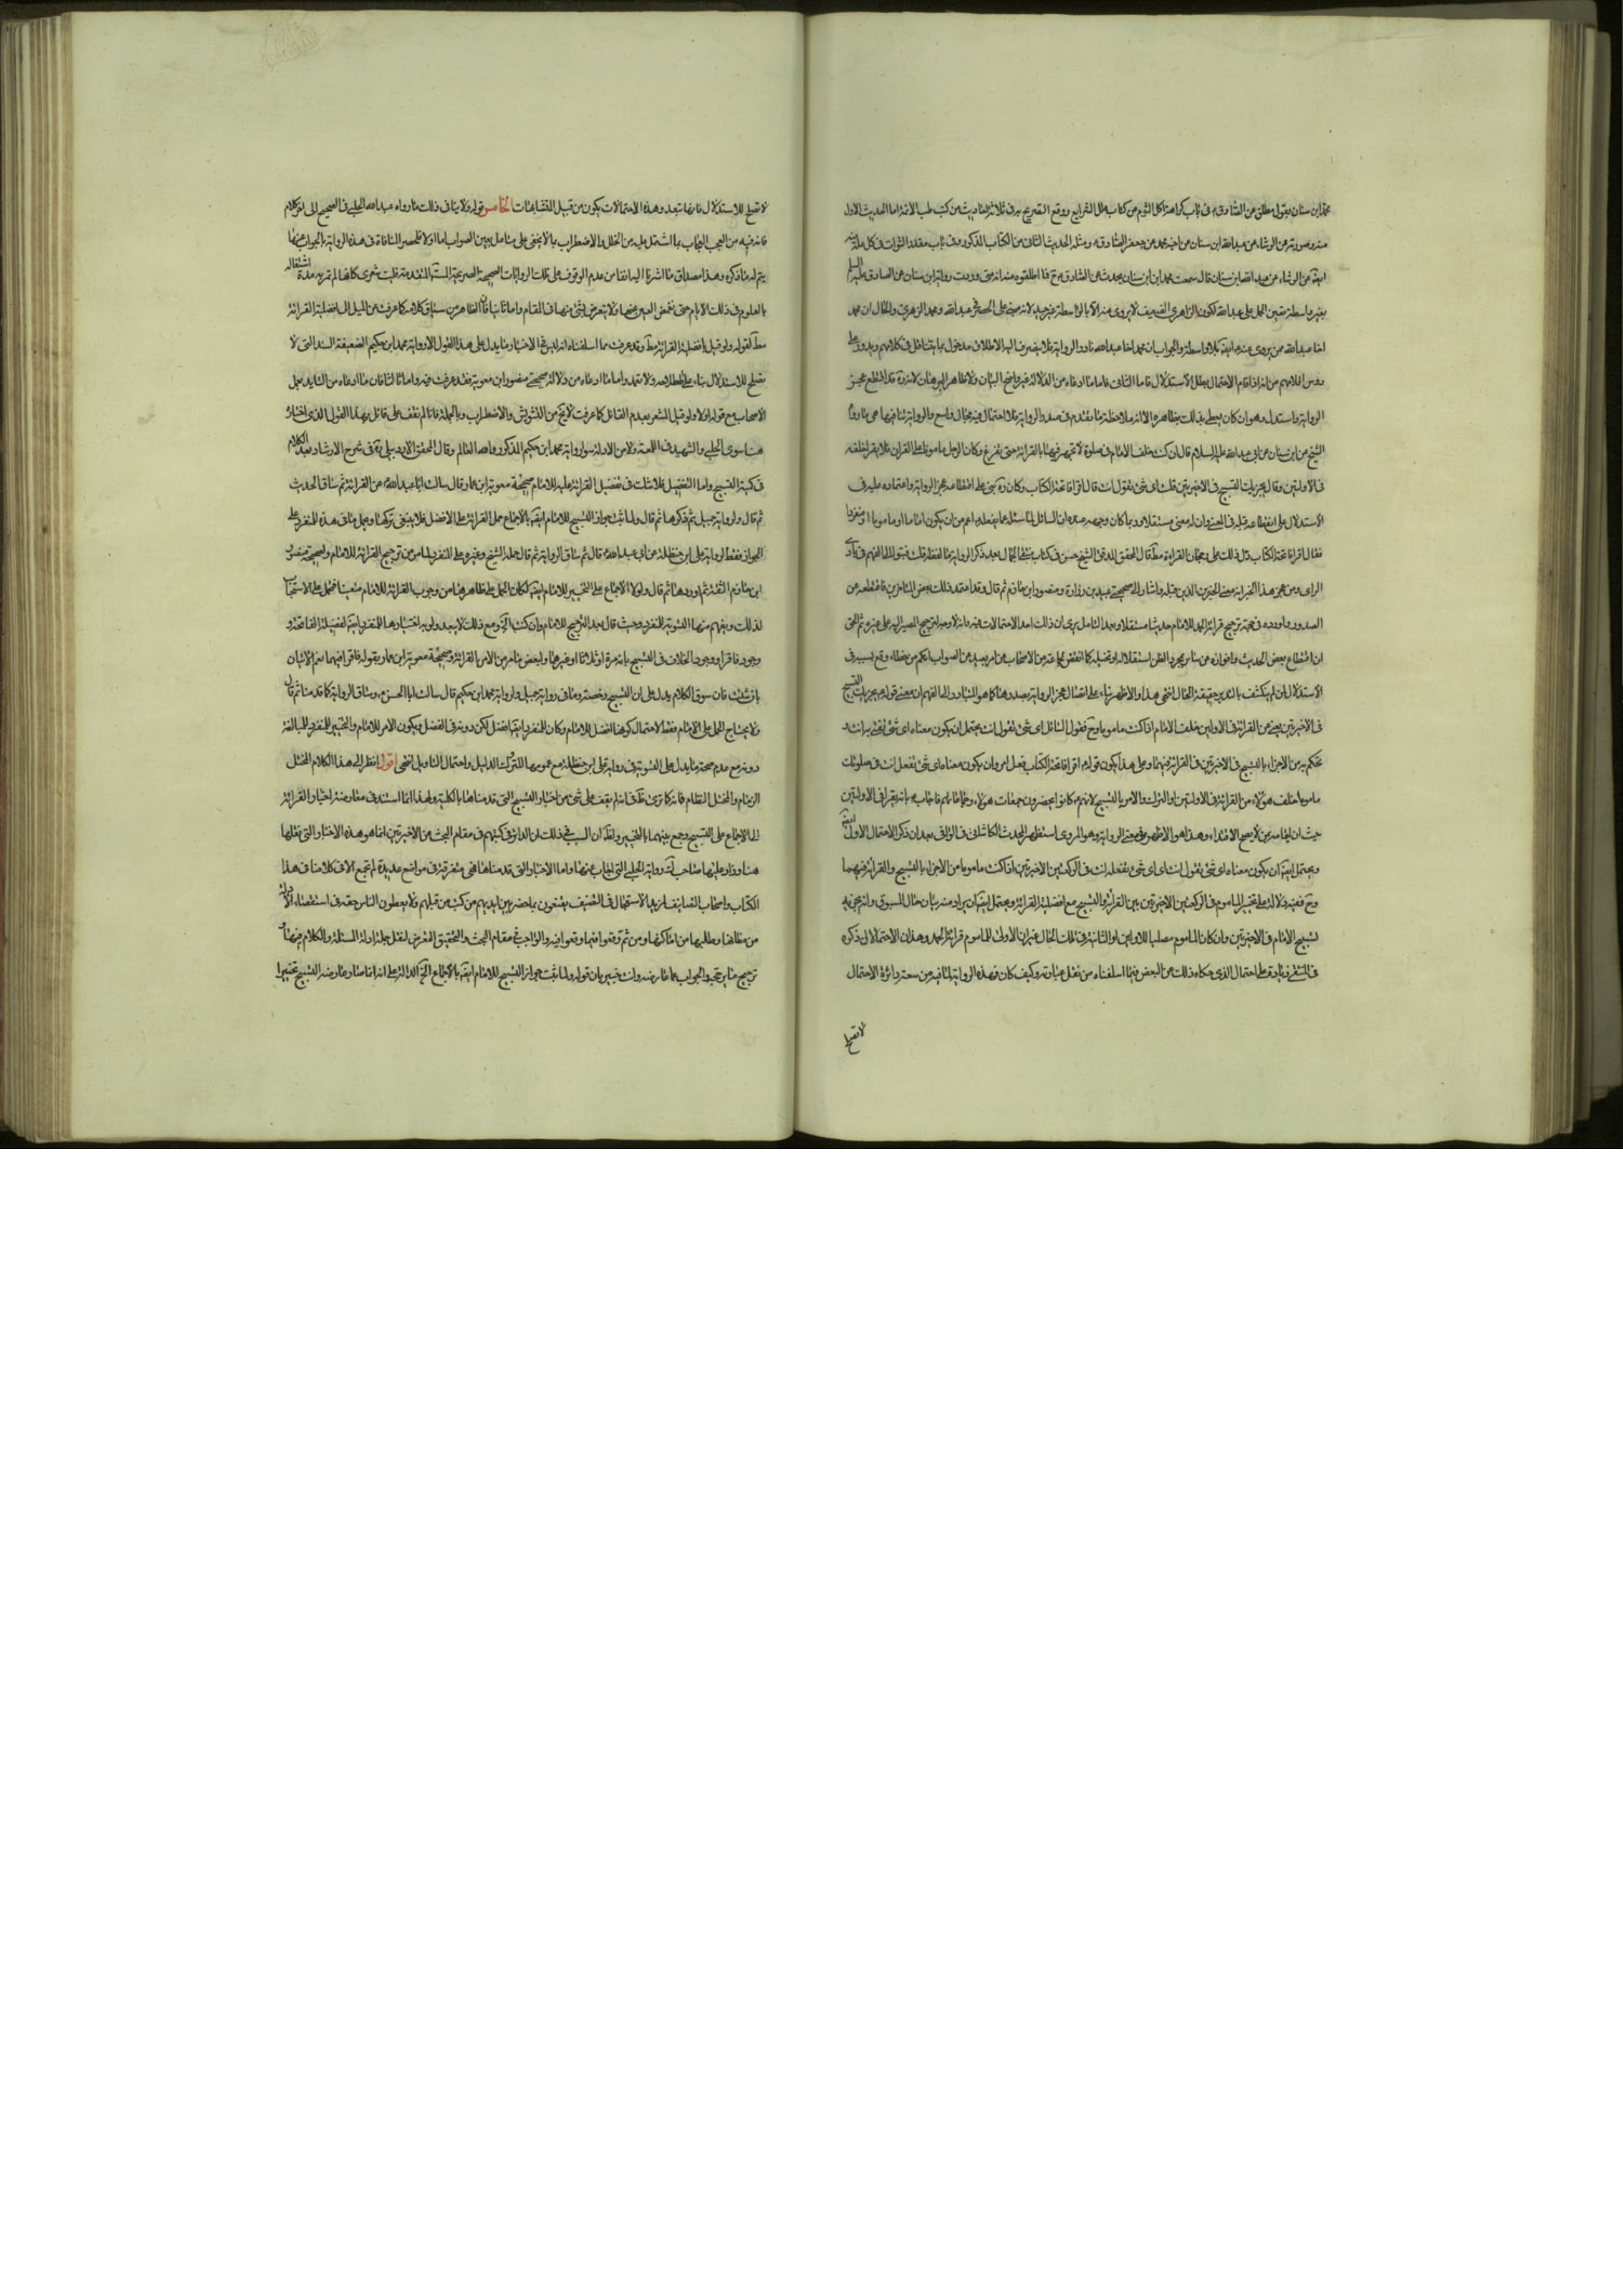 محمد ابن سنان يقول مطلق عن الصادق ع في باب كراهة اكل الثوم من كتاب علل الشرايع ووقع التصريح به في ثلاثة احاديث من كتب طب الائمة اما الحديث الاول
عن الوشاء عن عبد الله ابن سنان عن اخيه محمد عن جعفر الصادق ع ومثله الحديث الثاني من الكتاب المذكور وفي باب مقدار الثواب في كل علة منه
ايضا عن الوشاء عن عبد الله ابن سنان قال سمعت محمد ابن سنان يحدث عن الصادق ع
بغير واسطة يتعين الحمل على عبد الله لكون الزاهري الضعيف لا يروي عنه الا بالواسطة غير جيد لانه مبني على الحصر في عبد الله ومحمد الزهري والحال ان محمد
اخا عبد الله ممن يروي عنه ع ايضا بلا واسطة والجواب ان محمد اخا عبد الله نادر الرواية فلا ينصرف اليه الاطلاق مدخول بما يتناقل في كلامهم ويدور على
من انه اذا قام الاحتمال بطل الاستدلال واما الثاني فاما ما ادعاه من الدلالة فغير واضح البيان ولا ظاهر البرهان لانه ره قد اقتطع عجز
الرواية واستدل به وهو ان كان يعطي بذلك بظاهره الا انه بملاحظة ما تقدم في صدر الرواية فللاحتمال فيه مجال واسع والرواية بتمامها هي ما رواه
الشيخ عن ابن سنان عن ابي عبد الله عليه السلام قال ان كنت خلف الامام في صلوة لا تجهر فيها بالقرائة حتى يفرغ وكان الرجل مامونا على القران فلا تقرا خلفه
في الاولتين وقال يجزيك التسبيح في الاخيرتين قلت اي شئ تقول انت قال اقرا فاتحة الكتاب وكانه ره بنى على انقطاع عجز الرواية واعتماده عليه في
الاستدلال على انقطاعه عما قبله في المعنى وان له معنى مستقلا وربما كان وجهه عنده ان السائل لما سئله عما يفعله اعم من ان يكون اماما او ماموما او منفردا
فقال اقرا فاتحة الكتاب دل ذلك على رجحان القراءة مطلقا قال المحقق المدقق الشيخ حسن في كتاب منتقى الجمال بعد ذكر الرواية ما لفظه قلت يتوال الى الفهم في بادي
الراي ومن عجز هذا الخبر انه بمعنى الخبرين الذين قبله واشار الى صحيحتي عبيد بن زرارة ومنصور ابن حازم ثم قال وقد اعتمد ذلك بعض المتاخرين فاقتطعه من
الصدور واورده في حجة ترجيح قرائة الحمد للامام حديثا مستقلا وبعد التامل يرى ان ذلك احد الاحتمالات فيه
ان اقتطاع بعض الحديث وافرازه عن سائره بمجرد الظن استقلاله او تخيله كما اتفق لجماعة من الاصحاب
الاستدلال لمن لم ينكشف بالتدبر حقيقة الحال انتهى هذا والاظهر بناء على اتصال عجز الرواية بصدرها كما هو المتبادر الى الفهم ان معنى قوله ع يجزيك التسبيح
في الاخيرتين يعني عن القرائة في الاولتين خلف الامام اذا كنت ماموما وح فقول السائل اي شئ تقول انت يحتمل ان يكون معناه اي شئ تفتي به انت و
تحكم به من الاجزاء بالتسبيح في الاخيرتين في القرائة فيهما وعلى هذا يكون قوله ع اقرا فاتحة الكتاب فعل امر وان يكون معناه اي شئ تفعل انت في صلوتك
ماموما خلف هؤلاء من القرائة في الاولتين او الترك والامر بالتسبيح لانهم ع كانوا يحضرون جماعات هؤلاء وجماعاتهم فاجاب ع بانه يقرا في الاولتين
حيث ان امامه ممن لا يصح الاقتداء به وهذا هو الاظهر في معنى الرواية وهو المروي استظهره المحدث الكاشاني في الوافي بعد ان ذكر الاحتمال الاول ايضا
ويحتمل ايضا ان يكون معناه اي شئ تقول انت اي اي شئ تفعله انت في الركعتين الاخيرتين اذا كنت ماموما من الاجزاء بالتسبيح والقرائة فيهما
وح ففيه دلالة على تخيير الماموم في الركعتين الاخيرتين بين القرائة والتسبيح مع افضلية القرائة ويحتمل ايضا ان يراد منه بيان حال المسبوق وانه يجزيه
تسبيح الامام في الاخيرتين وان كان الماموم مصليا للاوليين او الثانية في تلك الحال
على احتمال الذي حكاه ذلك عن البعض فيما اسلفناه من نقل عبارته وكيف كان فهذه الرواية لما فيه من سعة دائرة الاحتمال
لا تصلح
لا تصلح للاستدلال فانها بتعدد هذه الاحتمالات يكون من قبيل المتشابهات الخامس قوله ولا ينافي ذلك ما رواه عبيد الله الحلبي في الصحيح الى اخر كلامه
فانه فيه من العجب العجاب بما اشتمل عليه من الخلل والاضطراب ما لا يخفى على متامل بعين الصواب اما اولا فلحصر المنافاة في هذه الرواية بالجواب عنها
يتم له ما ذكره وهذا مصداق ما اشرنا اليه انفا من عدم الوقوف على تلك الروايات الصحيحة الصريحة المتقدمة فليت شعري كانها لم تمر به مدة اشتغاله
بالعلوم في ذلك الايام حتى يغمض العين عنها ولا يتعرض لشئ منها في المقام واما ثانيا فان الظاهر من سياق كلامه كما عرفت من الميل الى افضلية القرائة
مطلقا لقوله ولو قيل بافضلية القرائة مطلقا وقد عرفت مما اسلفناه انه ليس في الاخبار ما يدل على هذا القول الا رواية محمد ابن حكيم الضعيفة السند التي لا
تصلح للاستدلال بناء على اصطلاحه ولا تعتمد واما ما ادعاه من دلالة صحيحة منصور ابن معوية فقد عرفت فيه واما ثالثا فان ما ادعاه من التاييد بعمل
الاصحاب مع قوله اولا ولو قيل المشعر بعدم القائل كما عرفت لا يخ من التشويش والاضطراب وبالجملة فانا لم نقف على قائل بهذا القول الذي اختاره
هنا سوى الحلبي والشهيد في اللمعة ولا من الادلة سوى رواية محمد ابن حكيم المذكور والله العالم وقال المحقق الاردبيلي ره في شرح الارشاد بعد الكلام
في كمية التسبيح واما التفضيل فلا شك في تفضيل القرائة عليه للامام صحيحة معوية ابن عمار وقال سالت ابا عبد الله ع عن القرائة ثم ساق الحديث
ثم قال ولرواية جميل ثم ذكرها ثم قال ولما ثبت جواز التسبيح للامام ايضا بالاجماع حمل القرائة على الافضل فلا ينبغي تركها وحمل ما في هذه للمنفرد على
الجواز فقط لرواية علي ابن حنظلة عن ابي عبد الله ع قال ثم ساق الرواية ثم قال حمله الشيخ وغيره على المنفرد لما مر من ترجيح القرائة للامام ولصحيحة منصور
ابن حازم الثقة ثم اوردها ثم قال ولولا الاجماع على التخيير للامام ايضا لكان الحمل على ظاهرها من وجوب القرائة للامام متعينا فحمل على الاستحباب
لذلك ويفهم منها التسوية للمنفرد وحيث قال بعد الترجيح للامام وان كنت الخ ومع ذلك لا يبعد اولوية اختيارها للمنفرد ايضا لفضيلة الفاتحة و
وجود فاقرا ووجود الخلاف في التسبيح بانه مرة او ثلاثا او غيرهما ولبعض ما مر من الامر بالقرائة وصحيحة معوية ابن عمار بقوله فاقرا فيهما نعم الاتيان
بان شئت فان سوق الكلام يدل على ان التسبيح رخصة وما في رواية جميل ولرواية محمد ابن حكيم قال سالت ابا الحسن ع وساق الرواية كما قدمنا ثم قال
ولا يحتاج الحمل على الامام فقط لاحتمال كونها افضل للامام وكان للمنفرد ايضا افضل لكن دونه في الفضل ويكون الامر للامام والتخيير للمنفرد للمبالغة
دونه مع عدم صحة ما يدل على التسوية في رواية علي ابن حنظلة مع عمومها المتروك الدليل واحتمال التاويل انتهى اقول انظر الى هذا الكلام المختل
الزمام والمنحل النظام فانه كما ترى ظاهر في انه لم يقف على شئ من اخبار التسبيح التي قدمناها بالكلية ولهذا انما استند في معارضة اخبار القرائة
الى الاجماع على التسبيح وجمع بينهما بالتخيير والظاهر ان السبب في ذلك ان الدائر في كتبهم في مقام البحث عن الاخيرتين انما هو هذه الاخبار التي نقلها
هنا وزاد عليها صاحب المدارك رواية الحلبي التي اجاب عنها واما الاخبار التي قدمناها فهي متفرقة في مواضع عديدة لم تجمع الا في كلامنا في هذا
الكتاب واصحاب التصانيف لمزيد الاستعجال في التصنيف يقنعون بما حضر بين ايديهم من كتب من قبلهم ولا يعطون الناس حقه في استقصاء الادلة
من مظانها وطلبها من اماكنها ومن ثم وقعوا فيما وقعوا فيه والواجب في مقام البحث والتحقيق التعرض لنقل جملة ادلة المسئلة والكلام فيها
ترجيح ما يرجحه والجواب عما عارضه وانت خبير بان قوله ولما ثبت جواز التسبيح للامام ايضا بالاجماع الخ